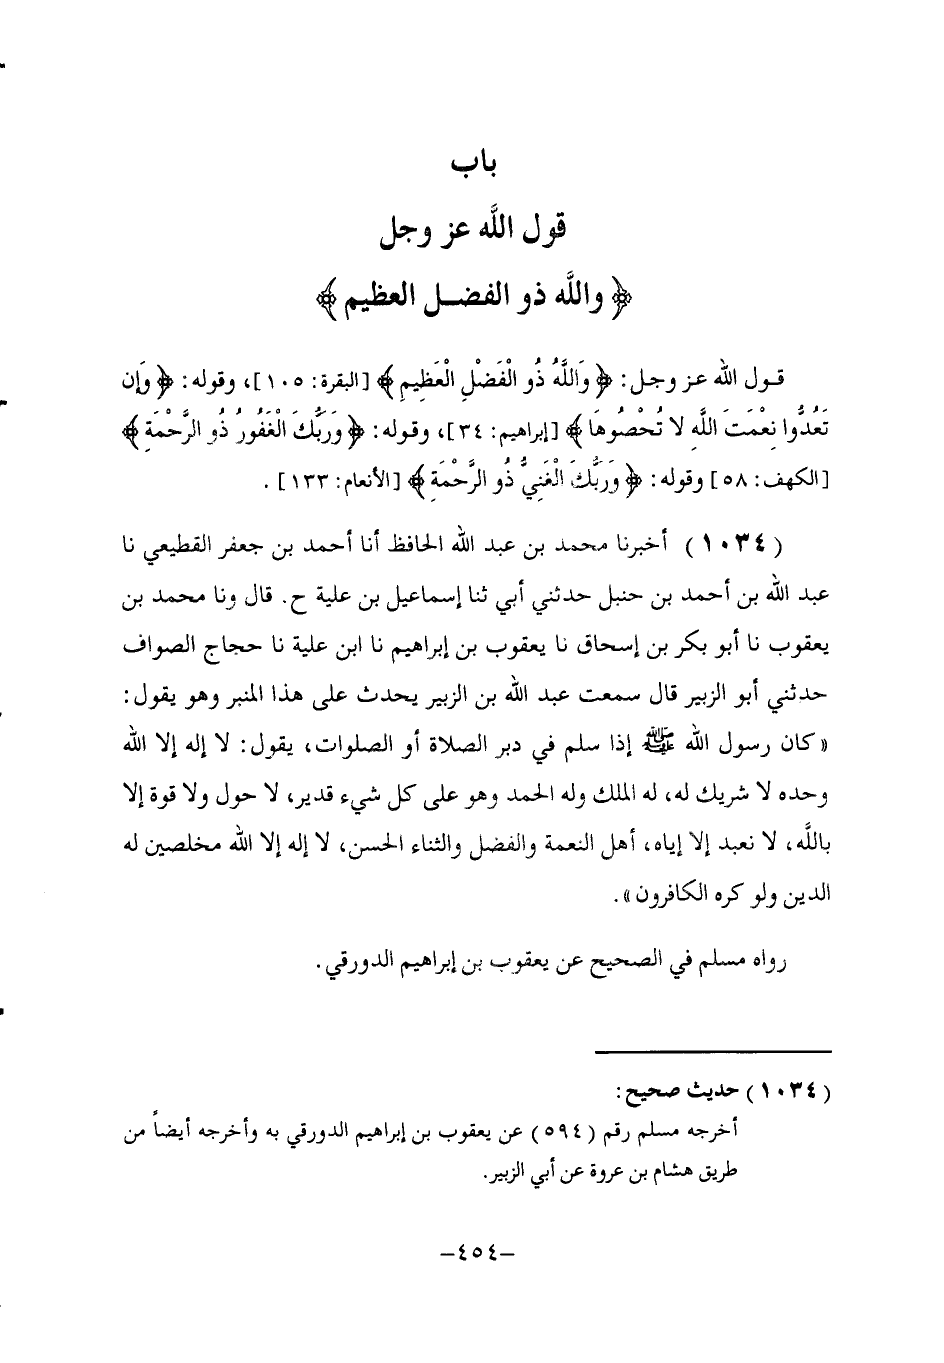 باب
قول اللَّه عز وجل
﴿ واللَّه ذو الفضـل العظيم ﴾
قـول الله عـز وجـل: ﴿ وَاللَّهُ ذُو الْفَضْلِ الْعَظِيمِ ﴾ [البقرة: ١٠٥]، وقوله: ﴿ وَإِن
تَعُدُّوا نِعْمَتَ اللَّهِ لا تُحْصُوهَا ﴾ [إبراهيم: ٣٤]، وقـوله: ﴿ وَرَبُّكَ الْغَفُورُ ذُو الرَّحْمَةِ ﴾
[الكهف: ٥٨] وقوله: ﴿ وَرَبُّكَ الْغَنِيُّ ذُو الرَّحْمَةِ ﴾ [الأنعام: ١٣٣] .
(١٠٣٤) أخبرنا محمد بن عبد الله الحافظ أنا أحمد بن جعفر القطيعي نا
عبد الله بن أحمد بن حنبل حدثني أبي ثنا إسماعيل بن علية ح. قال ونا محمد بن
يعقوب نا أبو بكر بن إسحاق نا يعقوب بن إبراهيم نا ابن علية نا حجاج الصواف
حدثني أبو الزبير قال سمعت عبد الله بن الزبير يحدث على هذا المنبر وهو يقول:
« كان رسول الله ﷺ إذا سلم في دبر الصلاة أو الصلوات، يقول: لا إله إلا الله
وحده لا شريك له، له الملك وله الحمد وهو على كل شيء قدير، لا حول ولا قوة إلا
باللَّه، لا نعبد إلا إياه، أهل النعمة والفضل والثناء الحسن، لا إله إلا الله مخلصين له
الدين ولو كره الكافرون ».
رواه مسلم في الصحيح عن يعقوب بن إبراهيم الدورقي.
(١٠٣٤) حديث صحيح:
أخرجه مسلم رقم (٥٩٤) عن يعقوب بن إبراهيم الدورقي به وأخرجه أيضاً من
طريق هشام بن عروة عن أبي الزبير.
–٤٥٤–